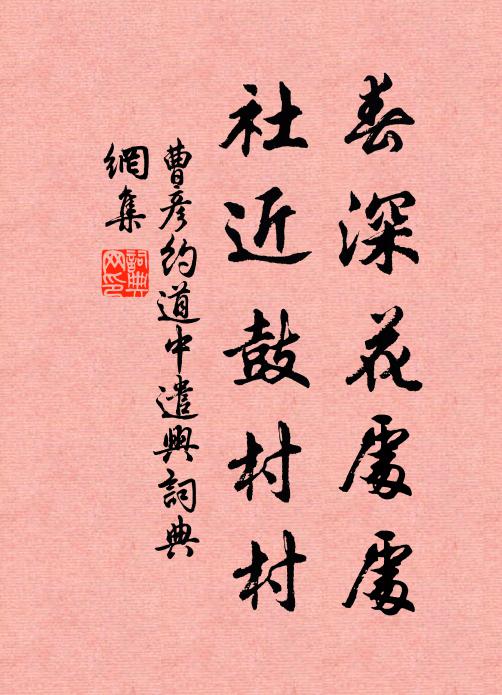 春深花處處
社近鼓村村
曹彦約道中遣興詞典
網集
詞典
网印